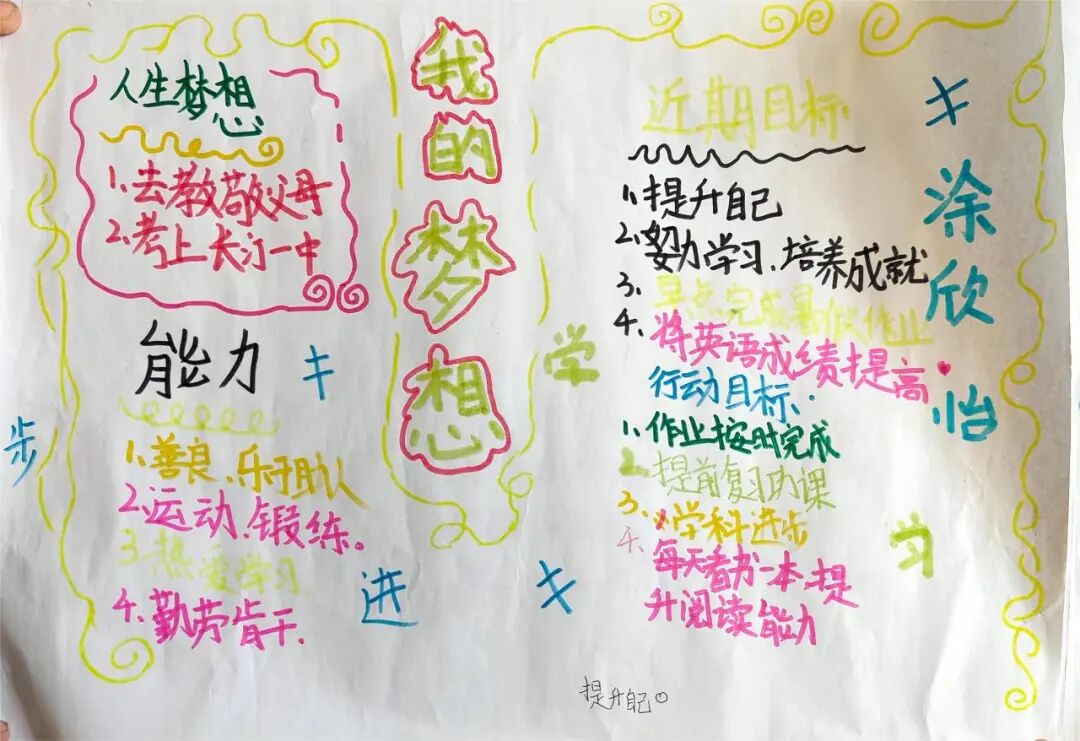 我的梦想
人生梦想
1、去教敬父母
2、考上长汀一中
能力
1、善良、乐于助人
2、运动、锻练。
3、热爱学习
4、勤劳肯干.
近期目标
1、提升自己
2、努力学习、培养成就
3、早点完成暑假作业
4、将英语成绩提高
行动目标、
1、作业按时完成
2、提前复习功课
3、学科进步
4、每天看书一本、提
升阅读能力
涂欣怡
学
习
进
步
提升自己。